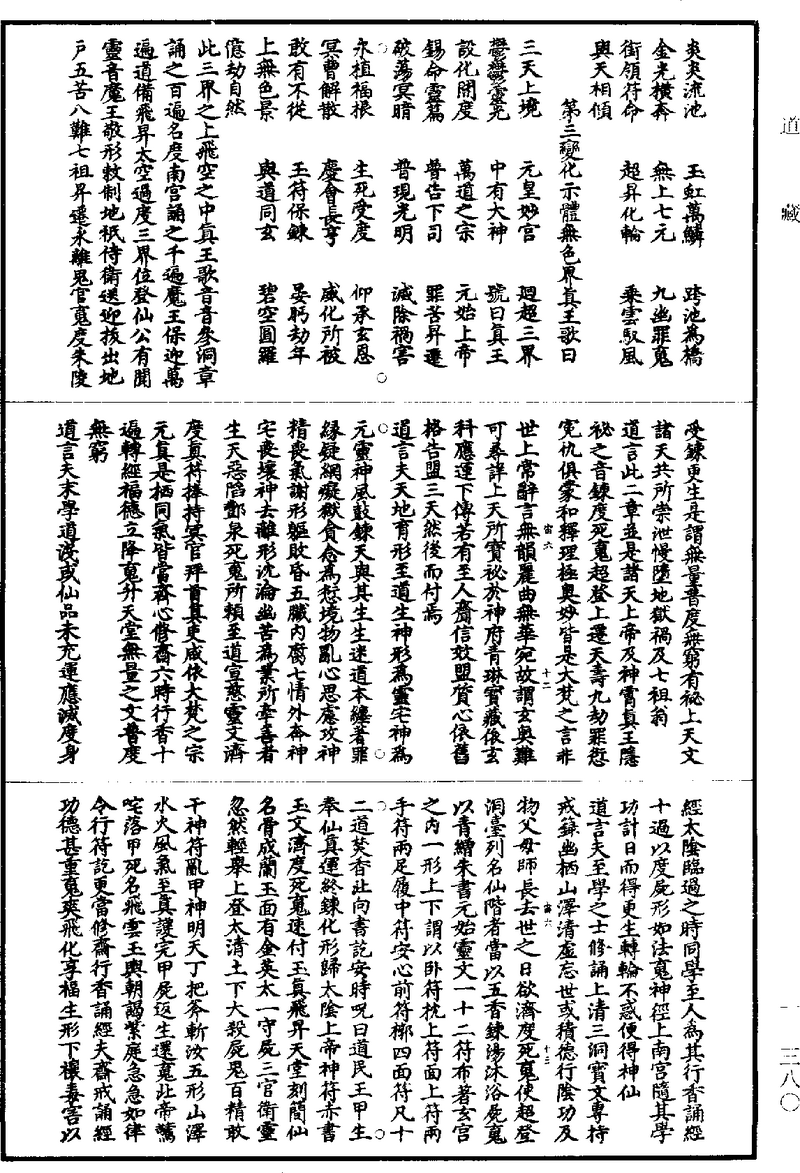 道藏
炎炎流池　玉虹萬鱗　跨池為橋
金光橫奔　無上七元　九幽罪魂
銜領符命　超昇化輪　乘雲馭風
與天相傾
第三變化示體無色界真王歌曰
三天上境　元皇妙宮　迴超三界
鬱鬱靈光　中有大神　號曰真王
設化開度　萬道之宗　元始上帝
錫命靈篇　普告下司　罪苦昇遷
破蕩冥暗　普現光明　滅除禍害
永植福根　生死受度　仰承玄恩
冥曹解散　慶會長亨　威化所被
敢有不從　玉符保鍊　晏眄劫年
上無色景　與道同玄　碧空圓羅
億劫自然
此三界之上飛空之中真王歌音音參洞章
誦之百遍名度南宮誦之千遍魔王保迎萬
遍道備飛昇太空過度三界位登仙公有聞
靈音魔王敬形敕制地祇侍衛送迎拔出地
戶五苦八難七祖昇遷永離鬼官魂度朱陵
受鍊更生是謂無量普度無窮有祕上天文
諸天共所崇泄慢墮地獄禍及七祖翁
道言此二章並是諸天上帝及神霄真王隱
祕之音鍊度死魂超登上遷天壽九劫罪愆
冤仇俱蒙和釋理極奧妙皆是大梵之言非
世上常辭言無韻麗曲無華宛故謂玄奧難
可尋詳上天所寶祕於神府青琳寶藏依玄
科應運下傳若有至人齎信效盟質心依舊
格告盟三天然後而付焉
道言夫天地育形至道生神形為靈宅神為
元靈神風鼓鍊天與其生生迷道本纏著罪
緣疑網癡獄貪念為愆境物亂心思慮攻神
精喪氣謝形軀敗昏五臟內腐七情外奔神
宅喪壞神去離形沈淪幽苦為業所牽善者
生天惡陷酆泉死魂所賴至道宣慈靈文濟
度真符捧持冥官拜首真吏咸依大梵之宗
元真是栖同氣皆當齋心修齋六時行香十
遍轉經福德立降魂升天堂無量之文普度
無窮
道言夫末學道淺或仙品未充運應滅度身
經太陰臨過之時同學至人為其行香誦經
十過以度屍形如法魂神徑上南宮隨其學
功計日而得更生轉輪不惑便得神仙
道言夫至學之士修誦上清三洞寶文專持
戒籙幽栖山澤清虛忘世或積德行陰功及
物父母師長去世之日欲濟度死魂使超登
洞臺列名仙階者當以五香鍊湯沐浴屍魂
以青繒朱書元始靈文一十二符布著玄宮
之內一形上下謂以卧符枕上符面上符兩
手符兩足履中符安心前符槨四面符凡十
二道焚香北向書訖安時呪曰道民王甲生
奉仙真運終鍊化形歸太陰上帝神符赤書
玉文濟度死魂速付玉真飛昇天堂刻簡仙
名骨成蘭玉面有金英太一守屍三官衛靈
忽然輕舉上登太清土下大殺屍鬼百精敢
干神符亂甲神明天丁把斧斬汝五形山澤
水火風氣至真護完甲屍返生還魂北帝驚
咤落甲死名飛雲玉輿朝謁紫庭急急如律
令行符訖更當修齋行香誦經夫齋戒誦經
功德甚重魂爽飛化享福生形下禳毒害以
宙六　十二
宙六　十三
一—三八〇